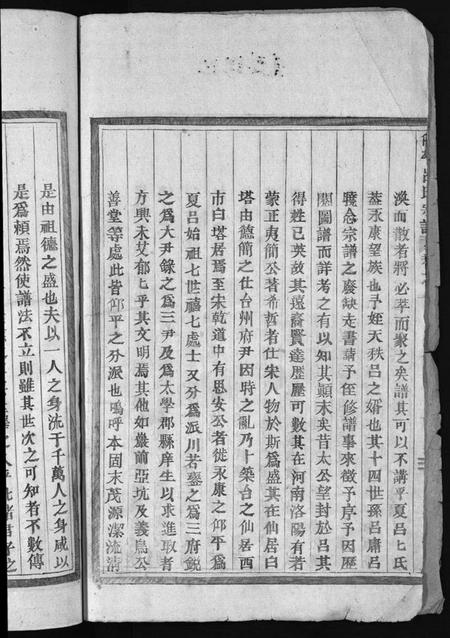 渙而散者將必萃而聚之矣譜其可以不講乎夏呂七氏
蓋永康望族也予姪天秩呂之婿也其十四世孫呂庸呂
念宗譜之廢缺走書請予侄修譜事來徵予序予因歷
閱圖譜而詳考之有以知其顛末矣昔太公望封於呂其
得姓已英故其遠裔賢達歷歷可數其在河南洛陽有若
蒙正夷簡公著希哲者仕宋人物於斯為盛其在仙居白
塔由德簡之仕台州府尹因時之亂乃卜築台之仙居西
市白塔居焉至宋乾道中有思安公者徙永康之仰平為
夏呂始祖七世禧七處士又分為派川若鑾之為三府鋭
之為大尹錄之為三尹及為太學郡縣庠生以求進取者
方興未艾郁乎其文明焉其他如巖前亞坑及義烏公
善堂等處此皆仰平之分派也嗚呼本固末茂源潔流清
是由祖德之盛也夫以一人之身流于千萬人之身咸以
是為賴焉然使譜法不立則雖其世次之可知者不數傳